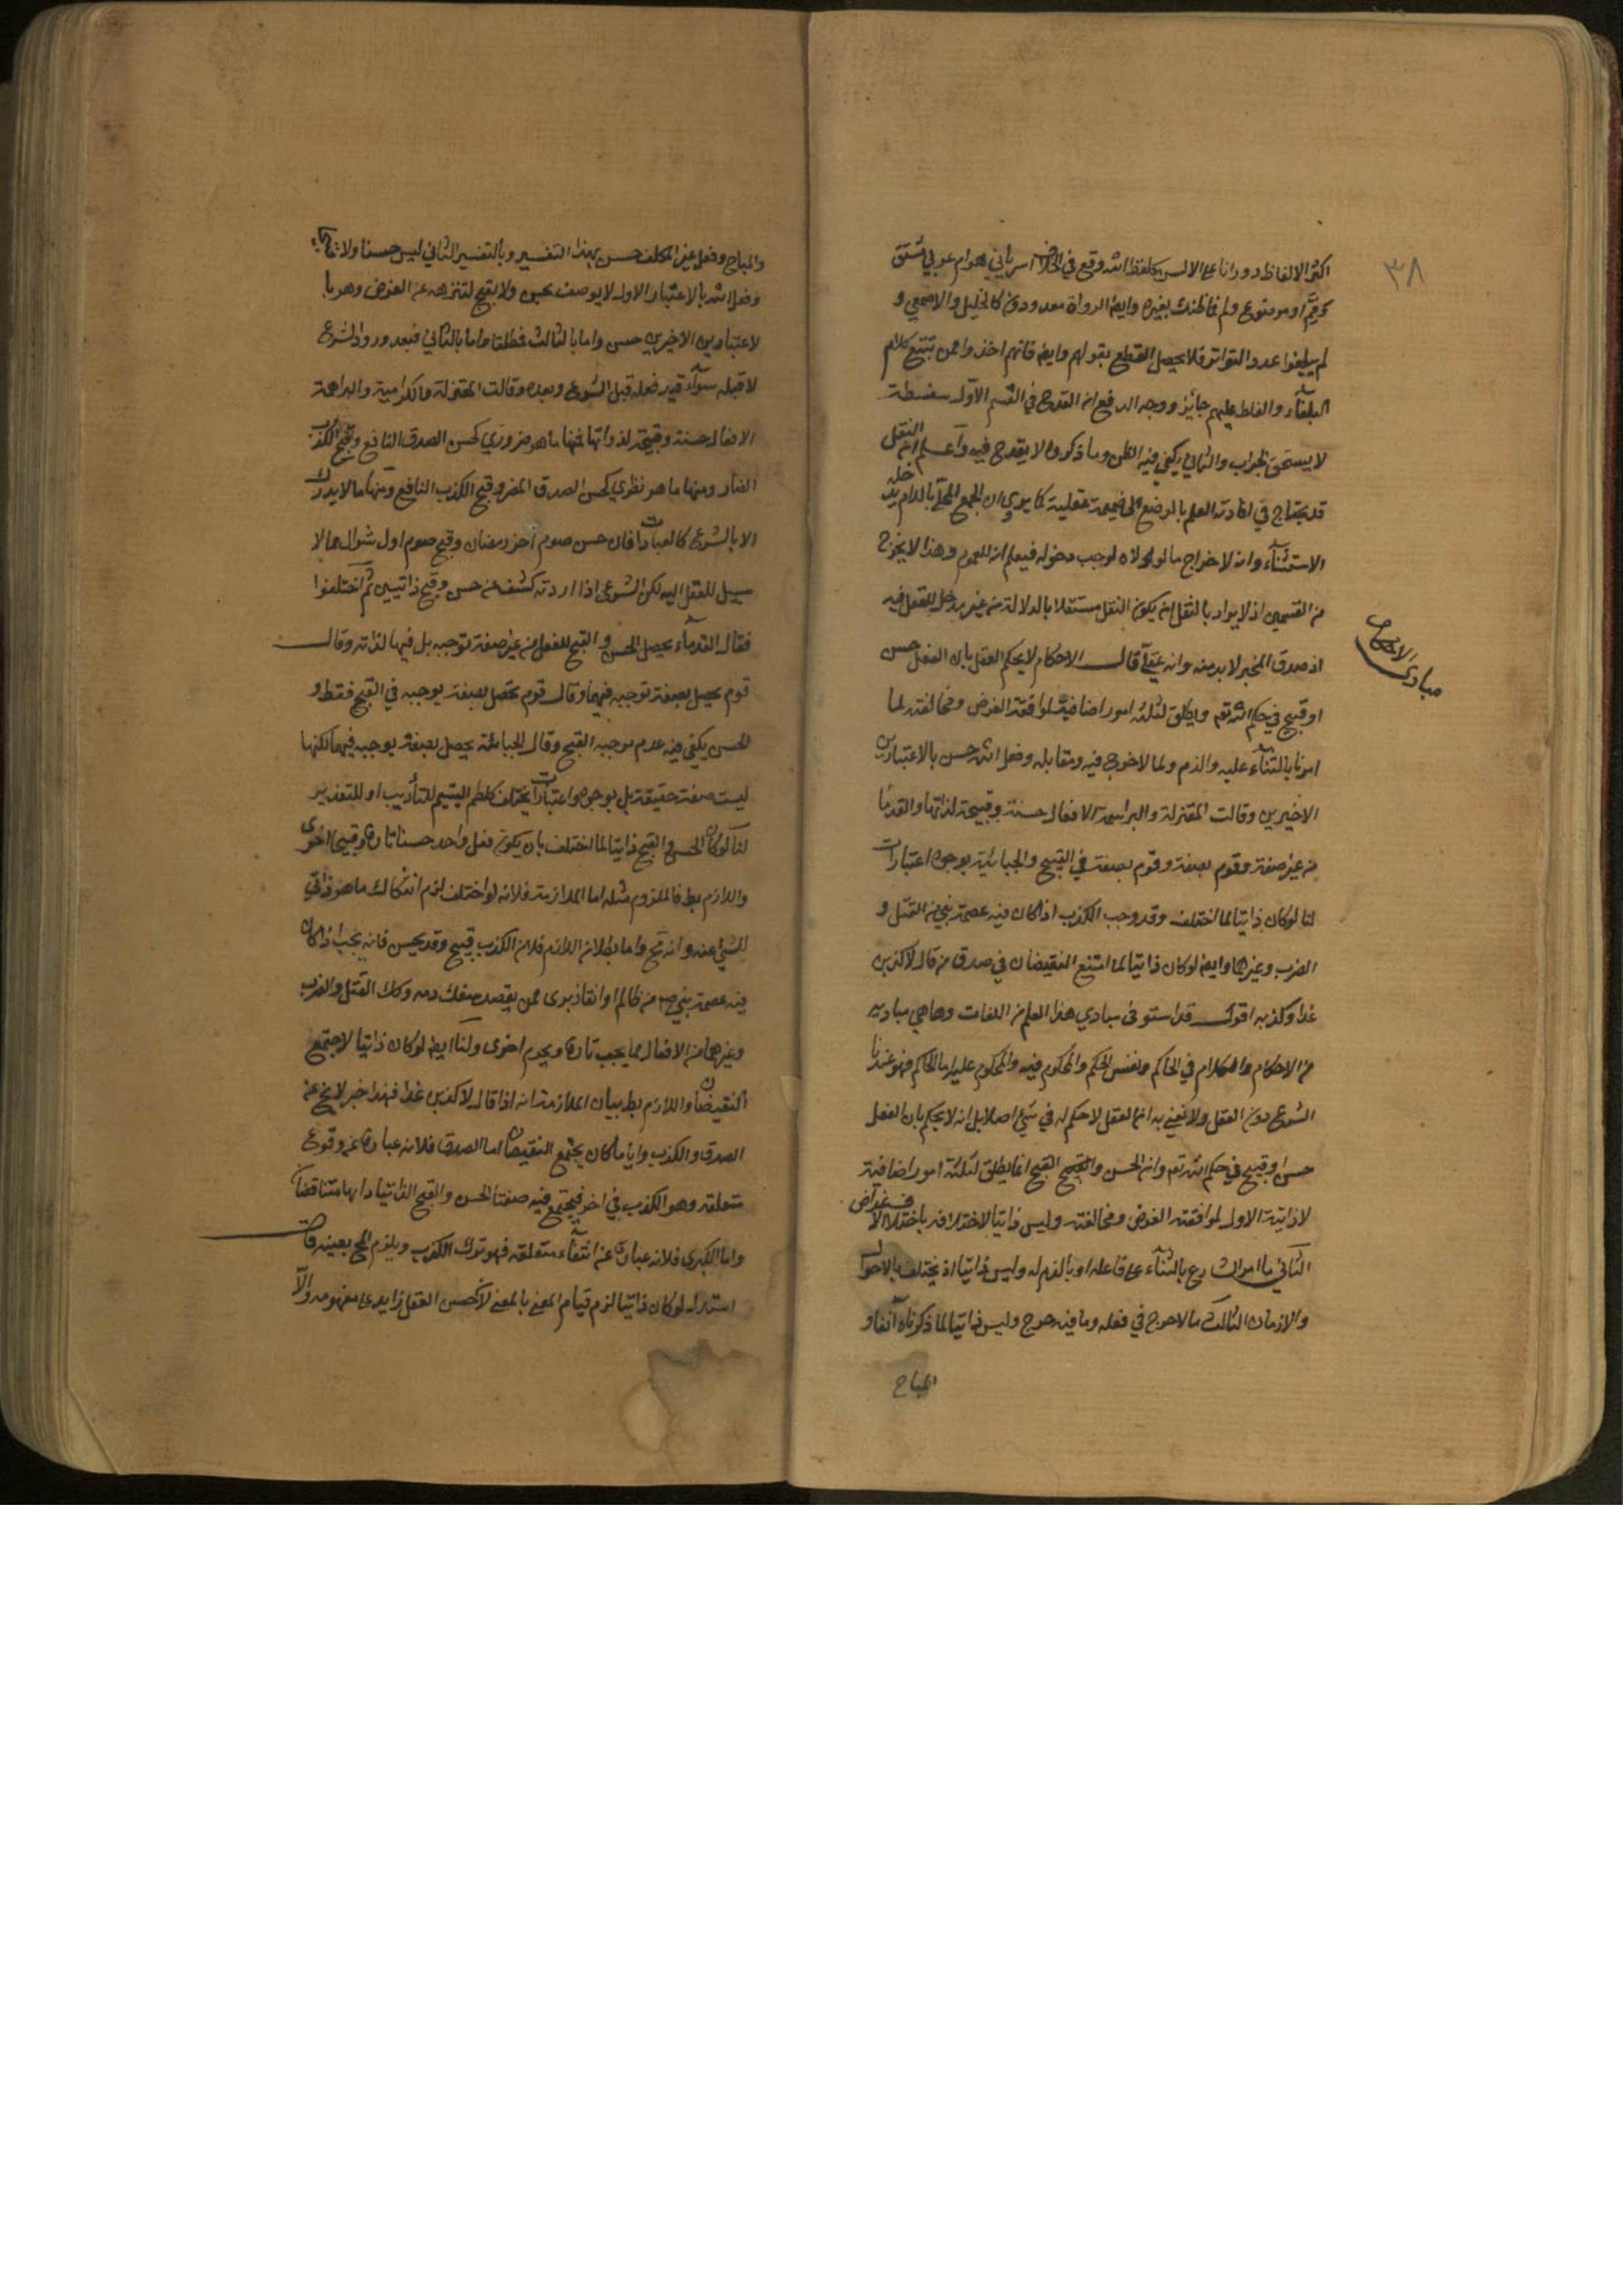 ٣٨
اكثر الالفاظ دورانا على الالسن كلفظ الله وقع في الخلاف اسرياني هو ام عربي مشتق
ومم او موضوع ولم فما ظنك بغيره وايضا الرواة معدودون كالخليل والاصمعي و
لم يبلغوا عدد التواتر فلا يحصل القطع بقولهم وايضا فانهم اخذوا ممن تتبع كلام
البلغاء والغلط عليهم جائز ووجه الدفع ان القدح في القسم الاول سفسطة
لا يستحق الجواب والثاني يكفي فيه الظن وما ذكروه لا يقدح فيه واعلم ان النقل
قد يحتاج في افادته العلم بالوضع الى ضميمة عقلية كما يروى ان الجمع المحلى باللام يدخله
الاستثناء وانه لاخراج ما لولاه لوجب دخوله فيعلم انه للعموم وهذا لا يخرج
من القسمين اذ لا يراد بالنقل ان يكون النقل مستقلا بالدلالة من غير مدخل للعقل فيه
اذ صدق المخبر لا بد منه وانه عقلي قال الاحكام لا يحكم العقل بان الفعل حسن
مبادى الاحكام
او قبيح في حكم الله تعم ويطلق لثلثة امور اضافية لموافقة الغرض ومخالفته ولما
امرنا بالثناء عليه والذم ولما لا حرج فيه ومقابله وفعل الله حسن بالاعتبارين
الاخيرين وقالت المعتزلة والبراهمة الافعال حسنة وقبيحة لذاتها والقدما
من غير صفة وقوم بصفة وقوم بصفة في القبيح والجبائية بوجوه اعتبارات
لنا لو كان ذاتيا لما اختلف وقد وجب الكذب اذا كان فيه عصمة نبي من القتل و
الضرب وغيرها وايضا لو كان ذاتيا لما امتنع النقيضان في صدق من قال لاكذبن
غدا وكذبه اقول قد استوفى مبادي هذا العلم من اللغات وها هي مباديه
من الاحكام والكلام في الحاكم ونفس الحكم والمحكوم فيه والمحكوم عليه اما الحاكم فهو عندنا
الشرع دون العقل ولا نعني به ان العقل لا حكم له في شيء اصلا بل انه لا يحكم بان الفعل
حسن او قبيح في حكم الله تعم وان الحسن والقبح انما يطلق لثلثة امور اضافية
لا ذاتية الاول لموافقته الغرض ومخالفته وليس ذاتيا لاختلافه باختلاف الاغراض
الثاني ما امر الشارع بالثناء على فاعله او بالذم له وليس ذاتيا اذ يختلف بالاحوال
والازمان الثالث ما لا حرج في فعله وما فيه حرج وليس ذاتيا لما ذكرناه آنفا و
المباح
والمباح وفعل غير المكلف حسن بهذا التفسير وبالتفسير الثاني ليس حسنا ولا قبيحا
وفعل الله بالاعتبار الاول لا يوصف بحسن ولا بقبح لتنزهه عن الغرض وهو با
لاعتبارين الاخيرين حسن واما بالثالث فمطلقا واما بالثاني فبعد ورود الشرع
لا قبله سواء قدر فعله قبل الشرع وبعده وقالت المعتزلة والكرامية والبراهمة
الافعال حسنة وقبيحة لذواتها فمنها ما هو ضروري كحسن الصدق النافع وقبح الكذب
الضار ومنها ما هو نظري كحسن الصدق المضر وقبح الكذب النافع ومنها ما لا يدرك
الا بالشرع كالعبادات فان حسن صوم آخر رمضان وقبح صوم اول شوال مما لا
سبيل للعقل اليه لكن الشرع اذا ورد به كشف عن حسن وقبح ذاتيين ثم اختلفوا
فقال القدماء يحصل الحسن والقبح للفعل من غير صفة توجبه بل فيهما لذاته وقال
قوم يحصل بصفة توجبه فيهما وقال قوم تحصل بصفة يوجبه في القبح فقط و
الحسن يكفي فيه عدم موجب القبح وقال الجبائية يحصل بصفة يوجبه فيهما لكنها
ليست صفة حقيقة بل بوجوه واعتبارات يختلف كلطم اليتيم للتأديب او للتعذير
لنا لو كان الحسن والقبح ذاتيا لما اختلف بان يكون فعل واحد حسنا تارة وقبيحا اخرى
واللازم بط فالملزوم مثله اما الملازمة فلانه لو اختلف لزم انفكاك ما هو ذاتي
للشيء عنه وانه مح واما بطلان اللازم فلان الكذب قبيح وقد يحسن فانه يجب اذا كان
فيه عصمة نبي من ظالم او انقاذ برى ممن يقصد سفك دمه وكك القتل والضرب
وغيرهما من الافعال مما يجب تارة ويحرم اخرى ولنا ايضا لو كان ذاتيا لاجتمع
النقيضان واللازم بط بيان الملازمة انه اذا قال لاكذبن غدا فهذا خبر لا يخ عن
الصدق والكذب وايا ما كان يجتمع النقيضان اما الصدق فلانه عبارة عن وقوع
متعلقه وهو الكذب في اخر فيجتمع فيه صفتا الحسن والقبح الذاتيان وهما متناقضان
واما الكذب فلانه عبارة عن انتفاء متعلقه فهو ترك الكذب ويلزم المح بعينه قال
استدل لو كان ذاتيا لزم قيام المعنى بالمعنى لان حسن الفعل زايد على مفهومه والا